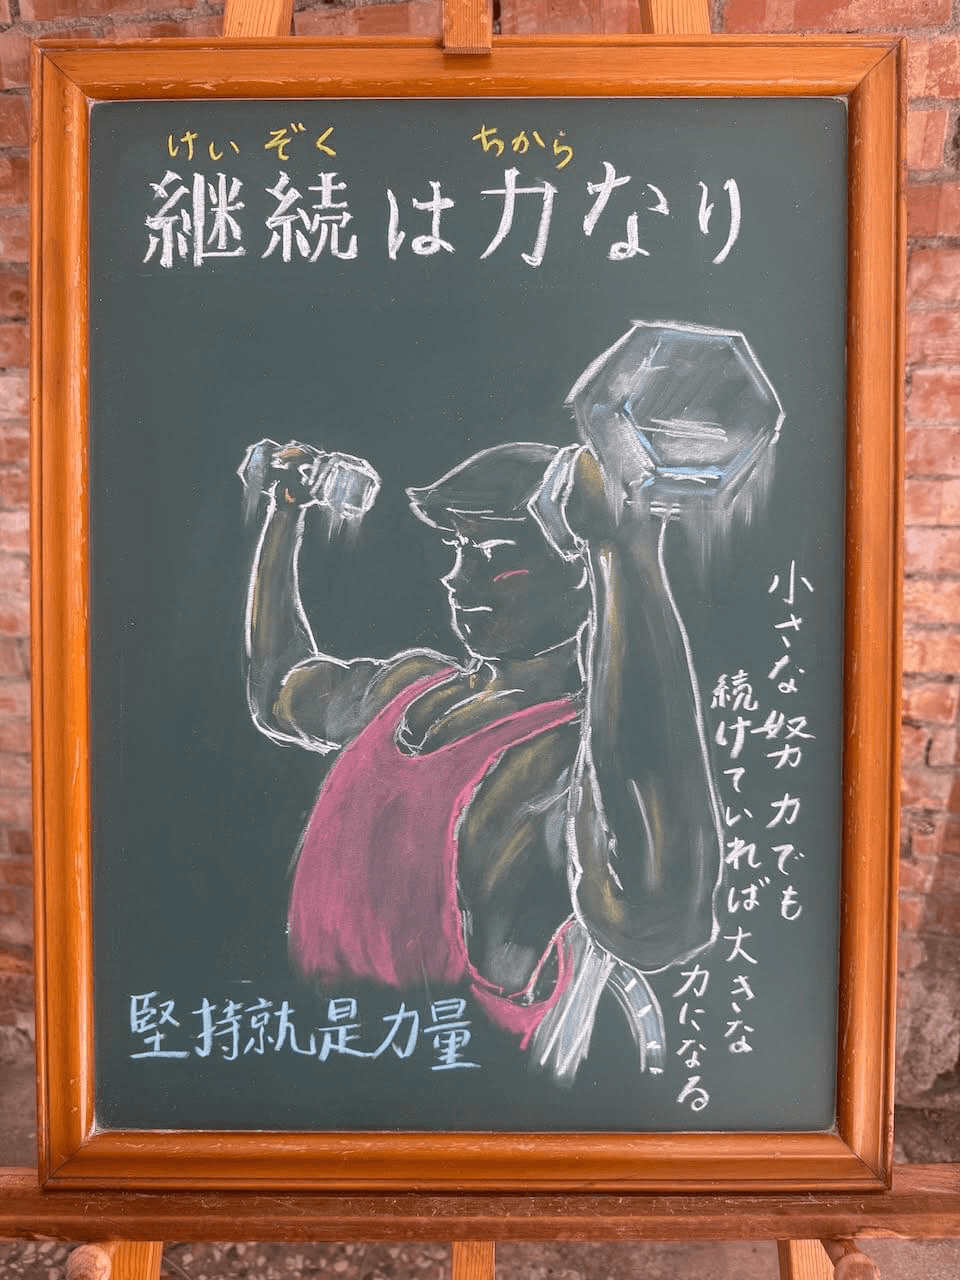 けいぞく ちから
継続は力なり
小さな努力でも
続けていれば大きな
力になる
堅持就是力量